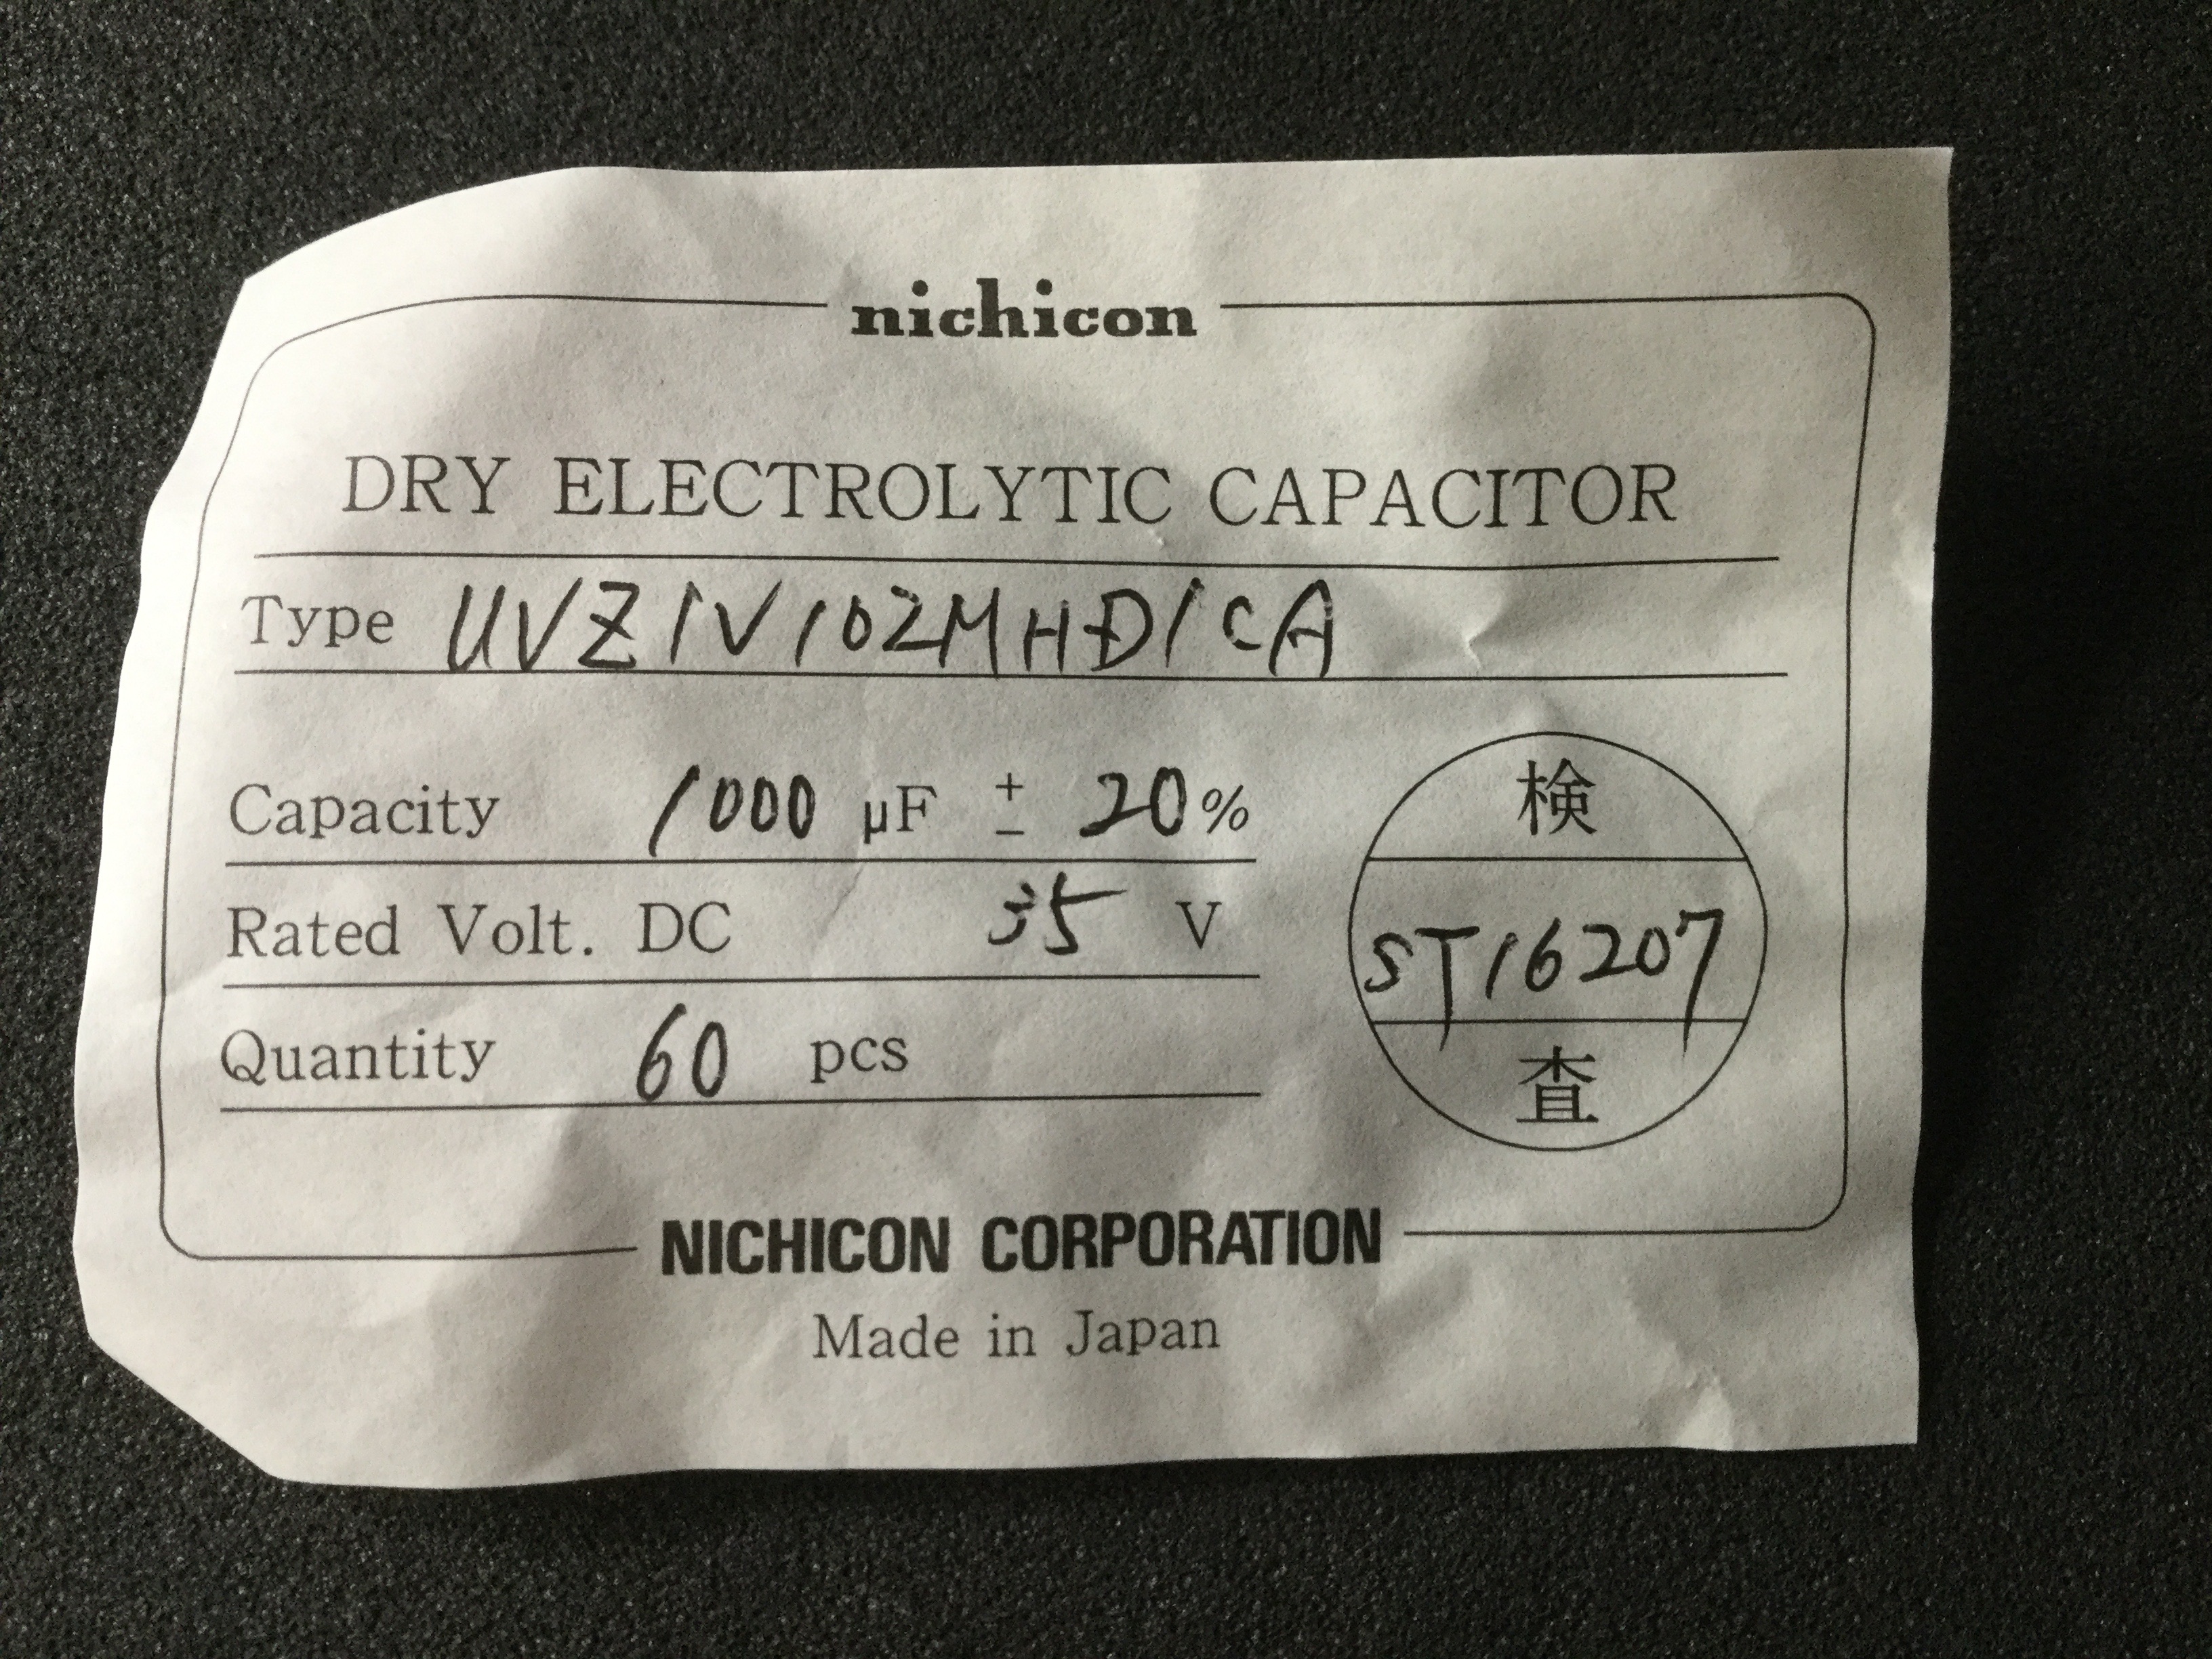 nichicon
DRY ELECTROLYTIC CAPACITOR
Type UVZ1V102MHD1CA
Capacity 1000 µF ± 20%
Rated Volt. DC 35 V
Quantity 60 pcs
検
ST16207
査
NICHICON CORPORATION
Made in Japan